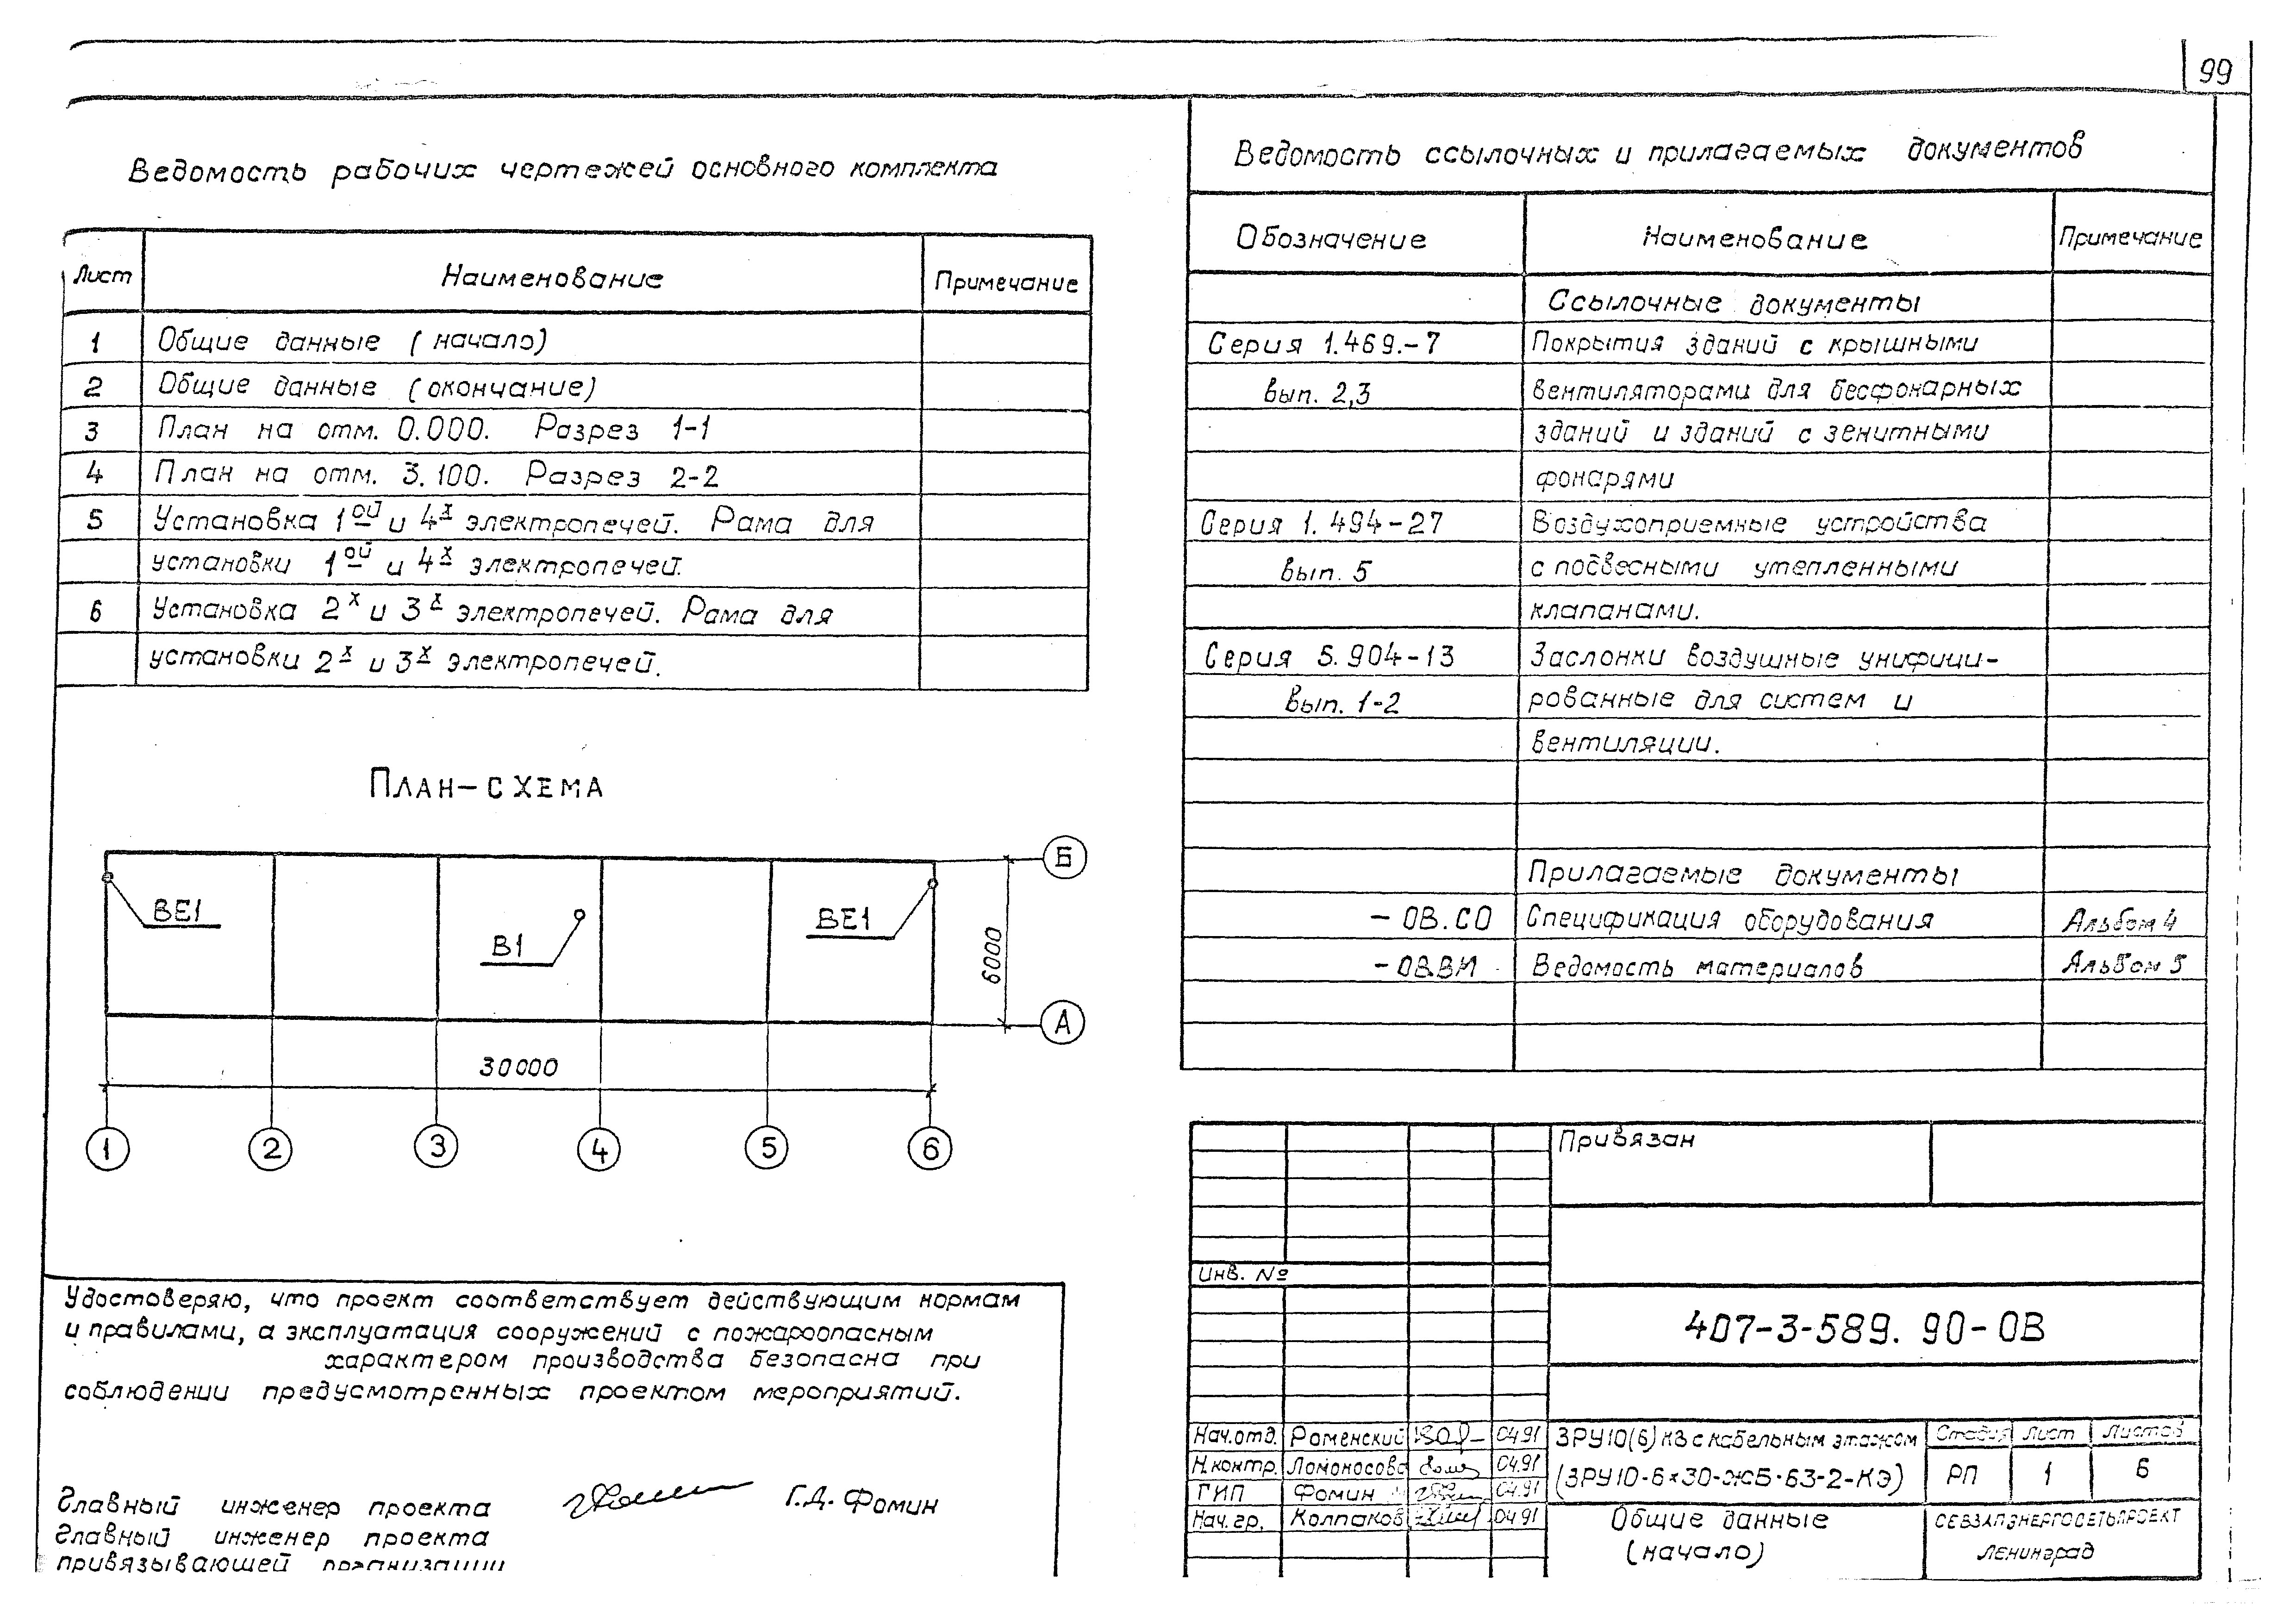 99
Ведомость рабочих чертежей основного комплекта
Лист Наименование Примечание
1 Общие данные (начало)
2 Общие данные (окончание)
3 План на отм. 0.000. Разрез 1-1
4 План на отм. 3.100. Разрез 2-2
5 Установка 1ой и 4х электропечей. Рама для
установки 1ой и 4х электропечей.
6 Установка 2х и 3х электропечей. Рама для
установки 2х и 3х электропечей.
План-схема
ВЕ1
В1
ВЕ1
Б
А
6000
30000
1 2 3 4 5 6
Удостоверяю, что проект соответствует действующим нормам
и правилами, а эксплуатация сооружений с пожароопасным
характером производства безопасна при
соблюдении предусмотренных проектом мероприятий.
Главный инженер проекта Г.Д. Фомин
Главный инженер проекта
привязывающей организации
Ведомость ссылочных и прилагаемых документов
Обозначение Наименование Примечание
Ссылочные документы
Серия 1.469.-7 Покрытия зданий с крышными
вып. 2,3 вентиляторами для бесфонарных
зданий и зданий с зенитными
фонарями
Серия 1.494-27 Воздухоприемные устройства
вып. 5 с подвесными утепленными
клапанами.
Серия 5.904-13 Заслонки воздушные унифици-
вып. 1-2 рованные для систем и
вентиляции.
Прилагаемые документы
- ОВ.СО Спецификация оборудования Альбом 4
- ОВ.ВМ Ведомость материалов Альбом 5
Привязан
Инв. №
407-3-589. 90-ОВ
Нач.отд. Роменский 04.91
Н.контр. Ломоносова 04.91
ГИП Фомин 04.91
Нач.гр. Колпаков 04.91
ЗРУ10(6) кВ с кабельным этажом
(ЗРУ10-6×30-ЖБ-63-2-КЭ)
Стадия Лист Листов
РП 1 6
Общие данные
(начало)
СЕВЗАПЭНЕРГОСЕТЬПРОЕКТ
Ленинград